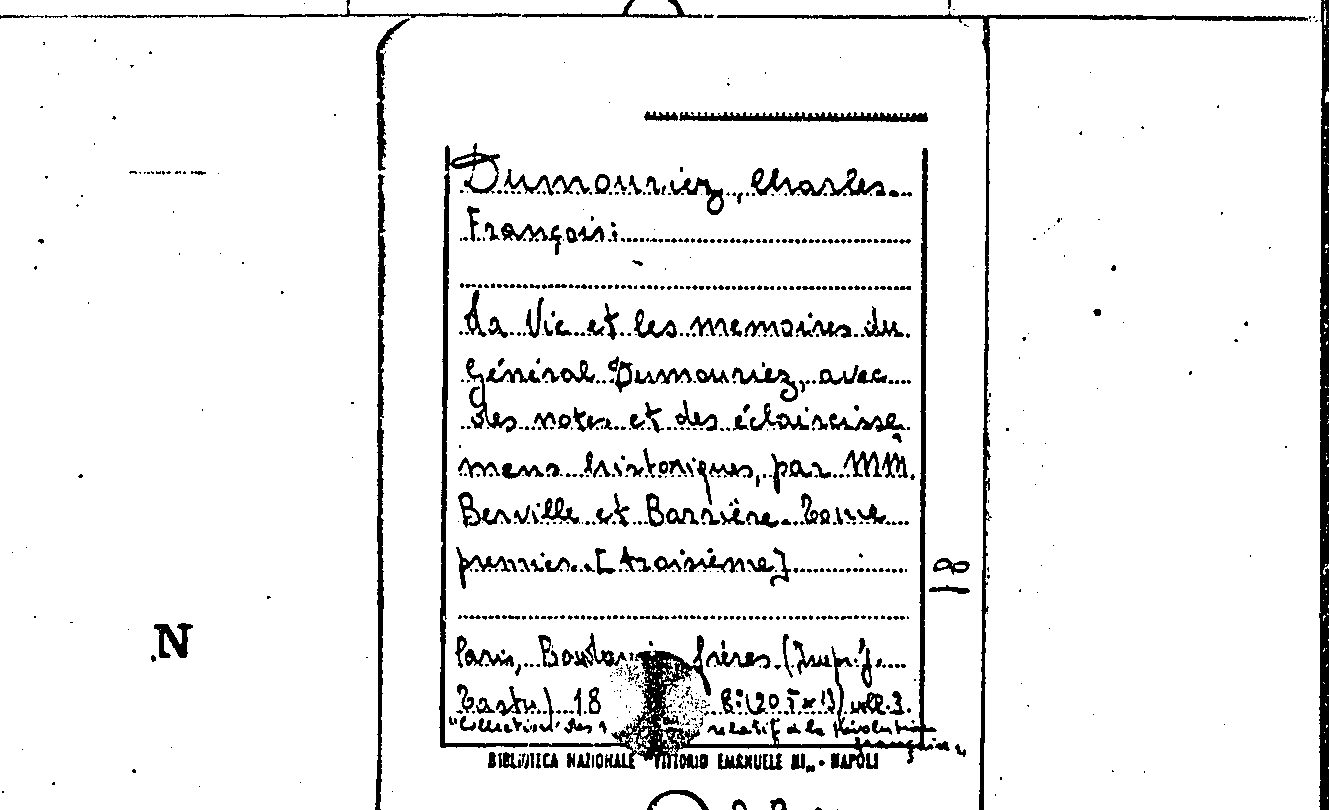 Dumouriez, Charles
François:
La Vie et les memoires du
Général Dumouriez, avec
des notes et des éclaircisse
mens historiques, par MM.
Berville et Barrière. Tome
premier. [troisième]
18
Paris, frères (Imp.
Tastu) 18 8° (20,5 x 13) voll. 3.
"Collection des relatif à la Révolution
française"
BIBLIOTECA NAZIONALE "VITTORIO EMANUELE III" - NAPOLI
N